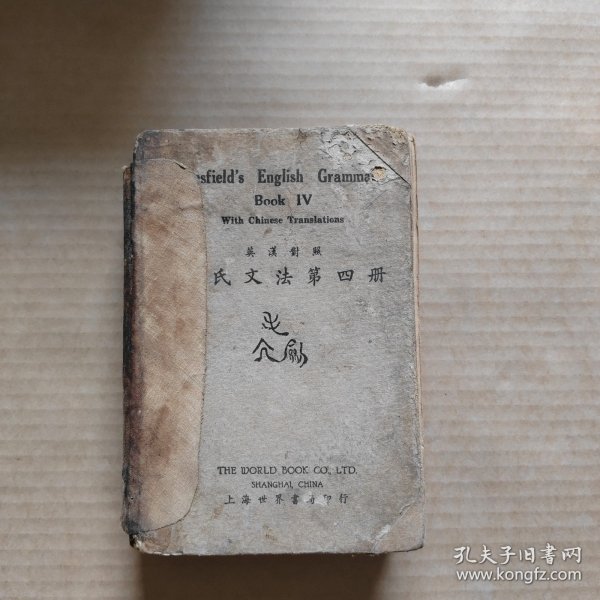 sfield's English Gramma
Book IV
With Chinese Translations
英漢對照
氏文法第四册
THE WORLD BOOK CO., LTD.
SHANGHAI, CHINA
上海世界書局印行
孔夫子旧书网
www.kongfz.com